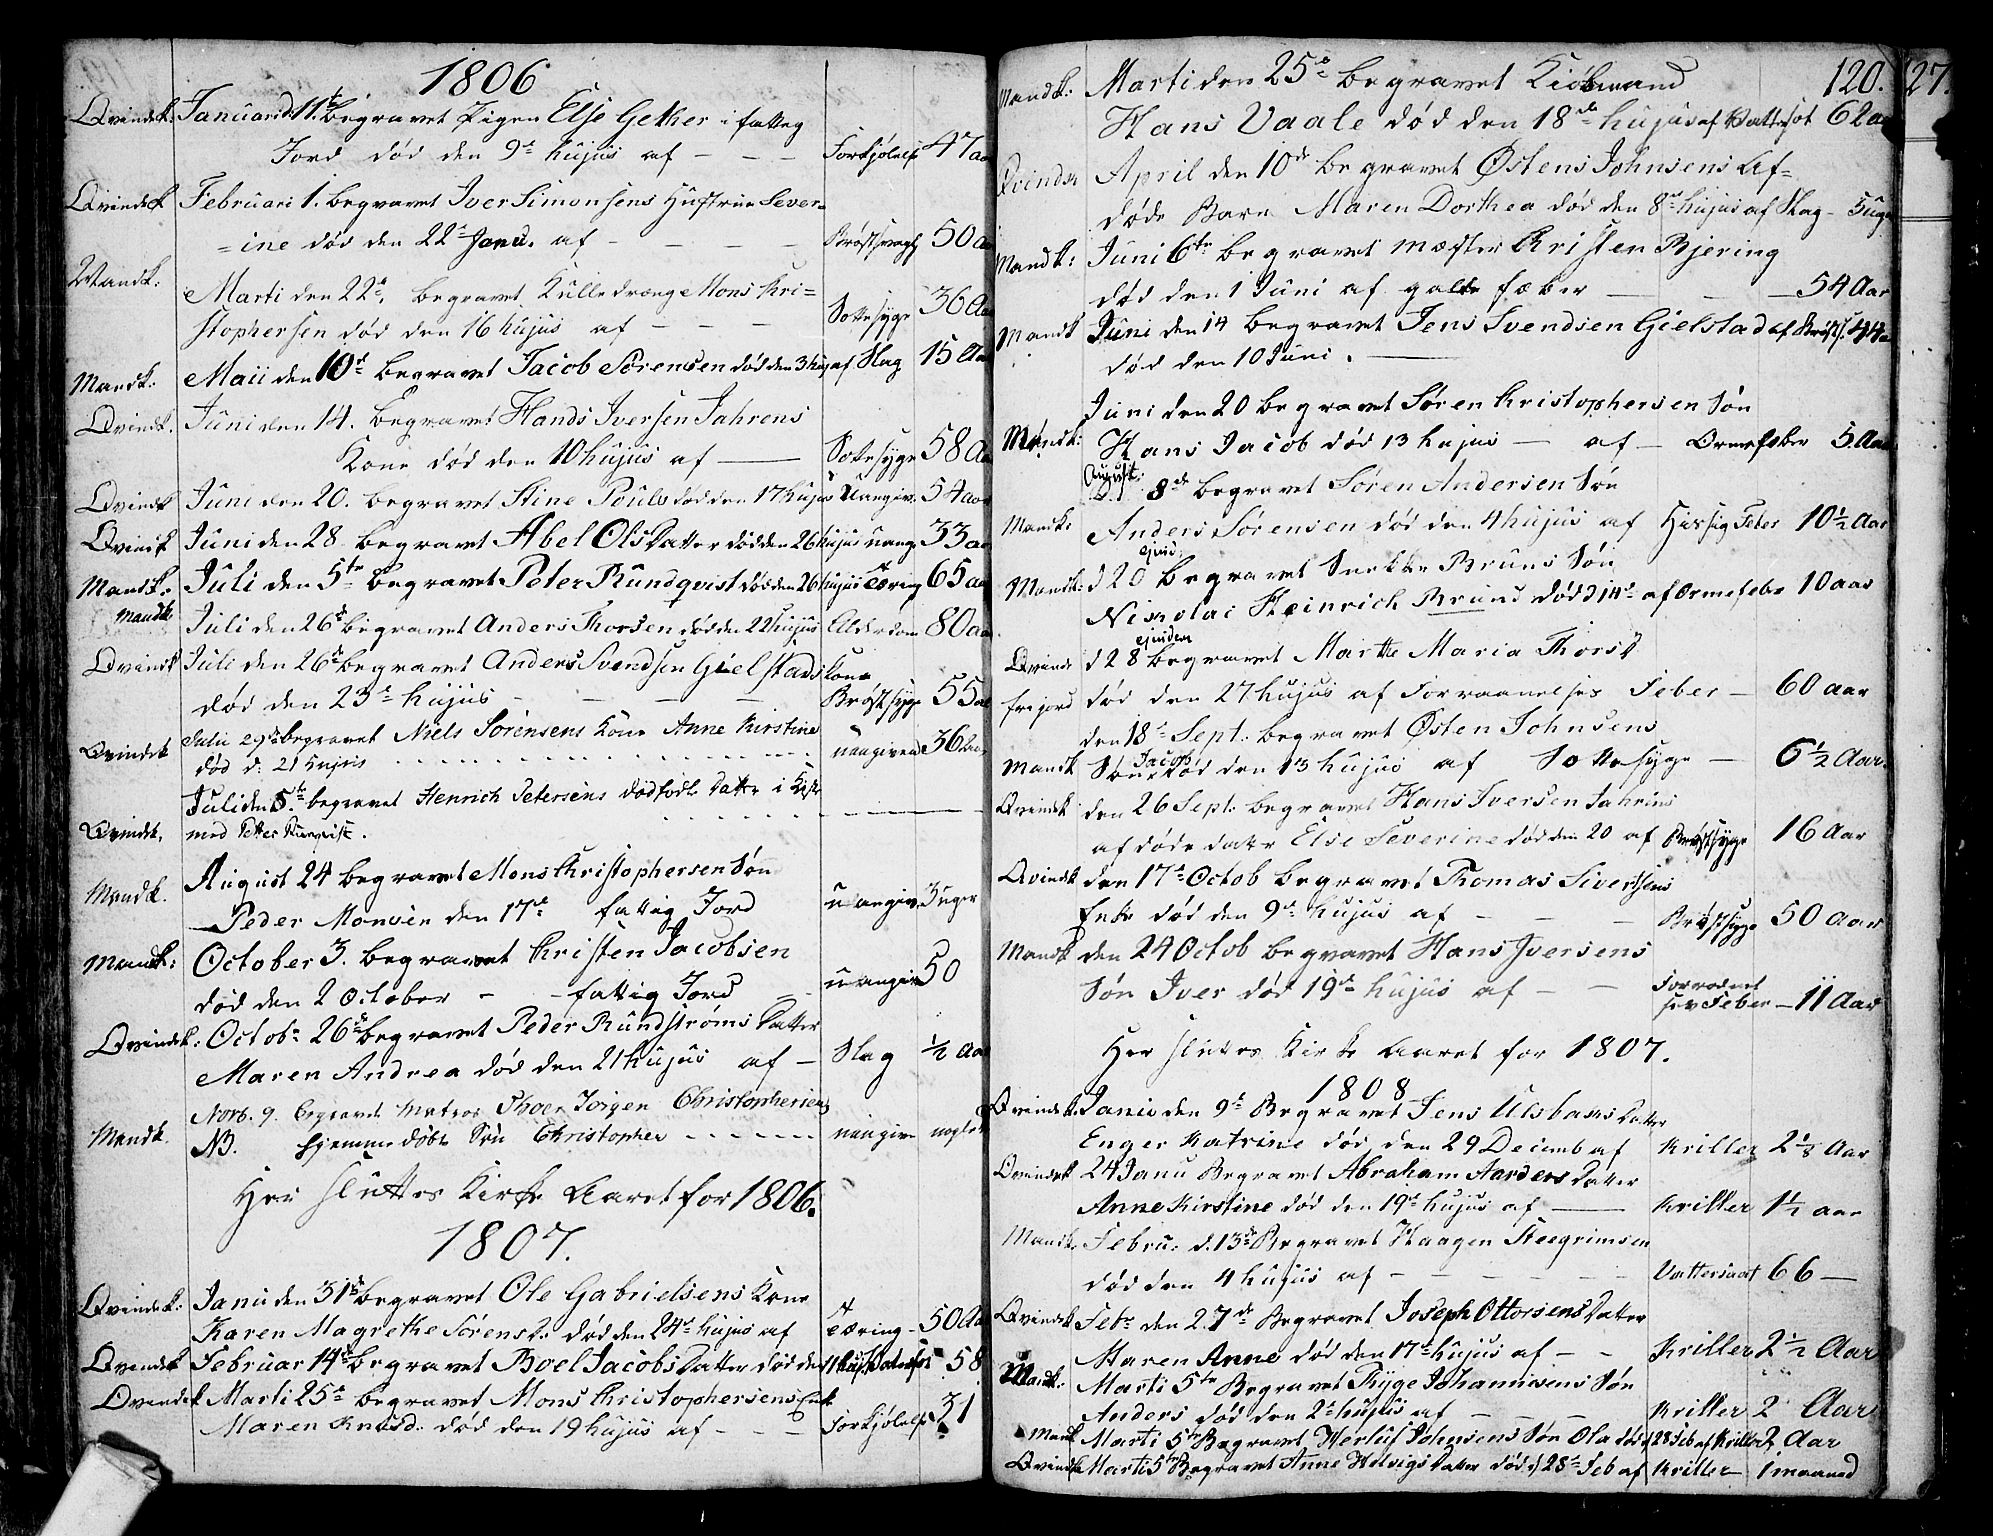 1806
Qvindek: Januari d: 11te begravet Pigen Else Getker i fattig
Jord død den 9de hujus af - - - Forkjølelse 47 aar
Qvindek Februari 1. begravet Iver Simonsens Hustrue Sever=
=ine død den 22de Janu. af - - - - Brøstsvaghed 50 aar
Mandk: Marti den 22de begravet Kulledreng Mons Kri=
stophersen død den 16 hujus af - - - Sottesyge 36 Aar
Mandk: Maii den 10de begravet Jacob Sörensen død den 3 huj af Slag 15 Aar
Qvindk. Juni den 14. begravet Hands Iversen Jahrens
Kone død den 10 hujus af — Sottesyge 58 Aar
Qvindk Juni den 20. begravet Stine Pouls død den 17 hujus Uangiv. 54 aar
Qvindk Juni den 28 begravet Abel Ols Datter død den 26 hujus uang. 33 aar
Mandk: Juli den 5te begravet Peter Rundqvist død den 26 hujus Tæring 65 aar
Mandk Juli den 26de begravet Anders Thorsen død den 22 hujus Alderdom 80 aar
Qvindk Juli den 26de begravet Anders Svendsen Gielstads Kone
død den 23de hujus - - - Brøstsyge 55 aar
Qvindek Julii 29de begravet Niels Sörensens Kone Anne Kirstine
død d: 21 hujus - - - - uangivend 36 aar
Juli den 5te begravet Henrich Petersens dødfødte Datter i Kiste
Qvindek. med Petter Runqvist.
Mandk. August 24 begravet Mons Christophersen Søn
Peder Monsen den 17de fattig Jord uangiv. 3 uger
Mandk: October 3. begravet Kristen Jacobsen
død den 2 October - - fattig Jord uangiv 50
Qvindek: Octobr 26de begravet Peder Rundstrøms Datter
Maren Andrea død den 21 hujus af - Slag ½ Aar
Novb. 9. begravet Matros Christophersens
Mandk. NB. hjemmedøbt Søn Christopher - - - - uangiv
Her sluttes Kirke Aaret for 1806.
1807.
Qvindek: Janu den 31te begravet Ole Gabrielsens Kone
Karen Magrethe Sörens D: død den 24de hujus af Tæring - 50 Aar
Qvindek Februar 14de begravet Boel Jacobs Datter død den 11 huj: 58
Qvindek Marti 25de begravet Mons Christophersens Enke
Maren Knud D: død den 19 hujus af - - - Forkjølelse 31
120. 127.
Mandk: Marti den 25de begravet Kiöbmand
Hans Vaale død den 18de hujus af Vattersot 62 aar
Qvindek April den 10de begravet Østens Johnsens Af=
døde Barn Maren Dorthea død den 8de hujus af Slag - 5 uger
Mandk: Juni 6te begravet Mæster Kristen Bjering
død den 1 Juni af galde fæber — — 54 Aar
Mandk Juni den 14 begravet Jens Svendsen Gielstad af Brøsts. 44 a
død den 10 Juni. —
Juni den 20 begravet Søren Kristophersen Søn
Mandk: Hans Jacob død 13 hujus — af — Ormefeber 5 Aar
August: 8de begravet Søren Andersen Søn
Mandk: Anders Sørensen død den 4 hujus af Hissig Feber 10½ Aar
Mandk: d 20 ejusd: begravet Snekker Bruns Søn
Nikolai Heinrich Bruns død d 14de af Ormefeber 10 aar
Qvindk d 28 ejusdem begravet Marthe Maria Thorsd
fri jord død den 27 hujus af Forraadnelses Feber — 60 aar
den 18de Sept. begravet Østen Johnsens
Mandk Søn Jacob død den 13 hujus af Sottesyge — 6½ Aar
Qvindek den 26 Sept: begravet Hans Iversen Jahrens
afdøde datter Else Severine død den 20 af Brøstsyge 16 Aar
Qvindek den 17de Octob begravet Thomas Sivertsens
Enke død den 9de hujus af - - - Brøstsyge 50 Aar
Mandk den 24 Octob begravet Hans Iversens
Søn Iver død 19de hujus af - - Forrodnelses Feber - 11 Aar
Her sluttes Kirke Aaret for 1807.
1808
Qvindek. Janu den 9de Begravet Jens Ulsbaks Datter
Enger Katrine død den 29 Decemb af Kriller 2⅛ Aar
Qvindek 24 Janu Begravet Abraham Aarders Datter
Anne Kirstine død den 19de hujus af — Kriller 1½ aar
Mandk. Febru: d. 13de Begravet Haagen Steegrimsen
død den 4 hujus af - - - - Vattersoot 66 —
Qvindek Feb: den 27de Begravet Joseph Ottorsens Datter
Maren Anne død den 17de hujus af - - Kriller 2½ Aar
Mandk: Marti 5te Begravet Tryge Johannisens Søn
Anders død den 2de hujus af - - - Kriller 2 Aar
Mank Marti 5te Begravet Herluf Johnsens Søn Ola død d 28 Feb af Kriller 2 Aar
Qvindek Marti 5te Begravet Anne Helvigs Datter død d 28de Feb af Kriller 1 maaned